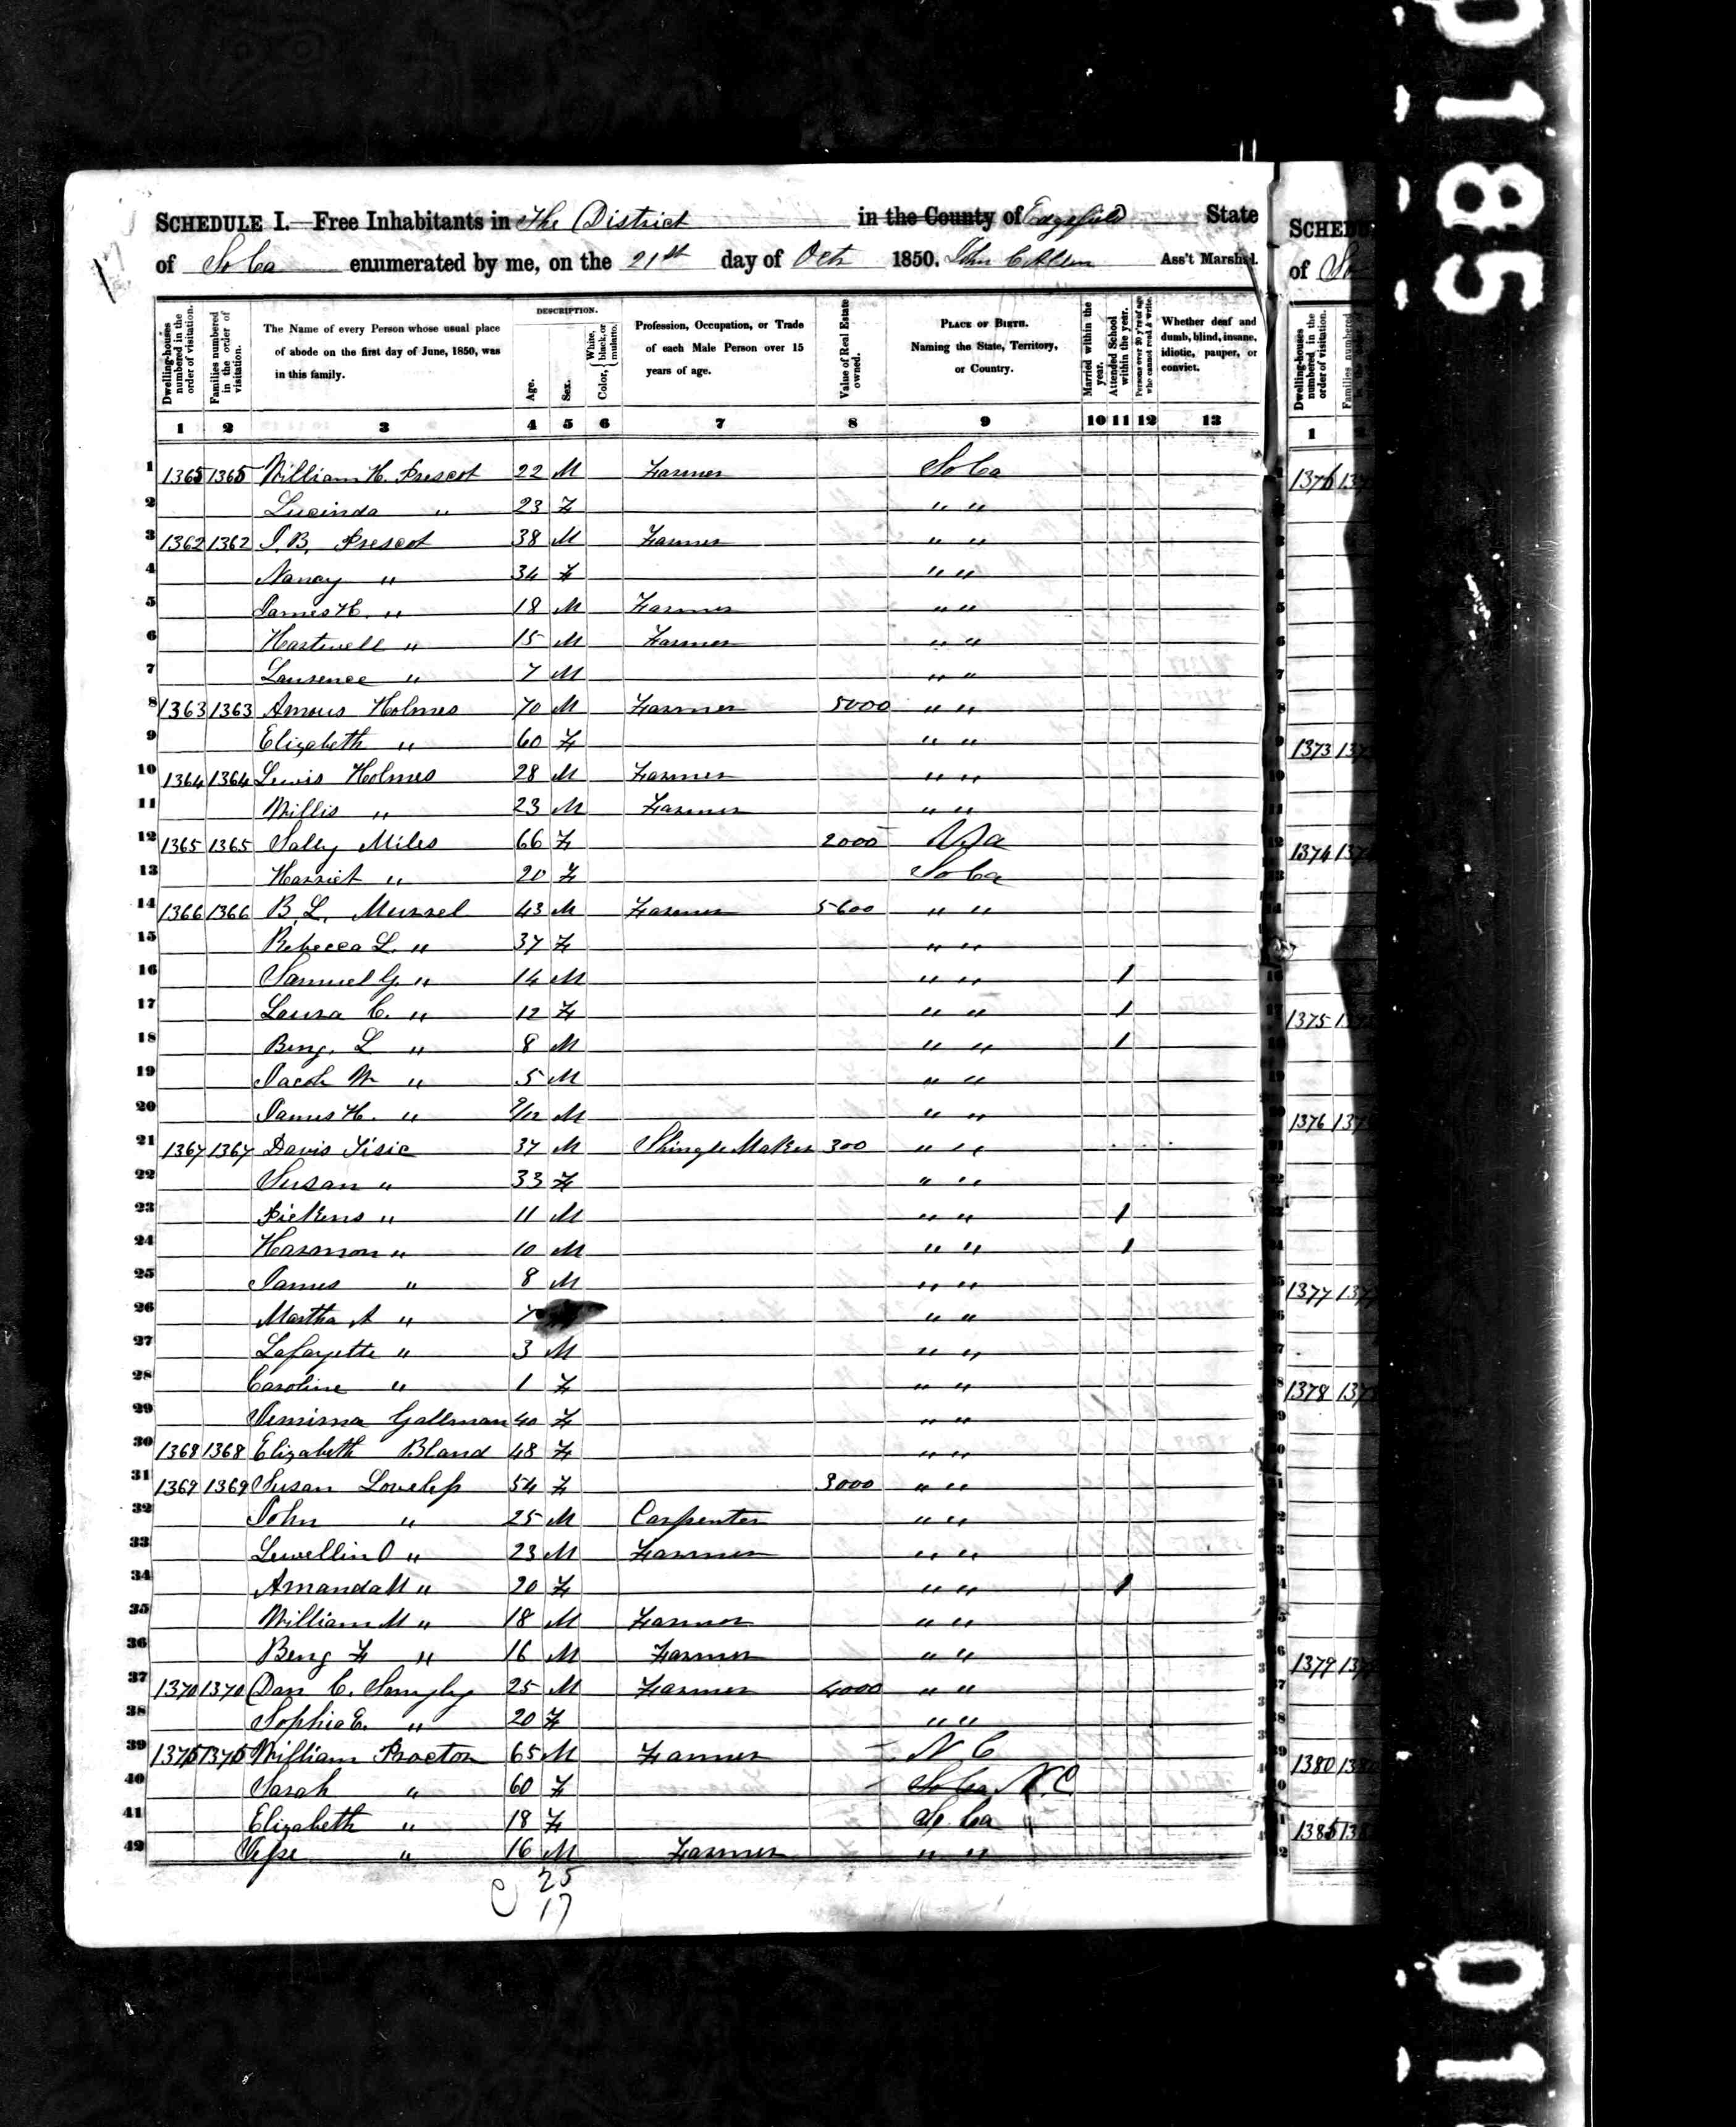 SCHEDULE I.—Free Inhabitants in The District in the County of Edgefield State
of So Ca enumerated by me, on the 21st day of Oct 1850. John C Allen Ass't Marshal.
Dwelling-houses numbered in the order of visitation.
Families numbered in the order of visitation.
The Name of every Person whose usual place of abode on the first day of June, 1850, was in this family.
DESCRIPTION.
Age.
Sex.
Color, White, black, or mulatto.
Profession, Occupation, or Trade of each Male Person over 15 years of age.
Value of Real Estate owned.
PLACE OF BIRTH. Naming the State, Territory, or Country.
Married within the year.
Attended School within the year.
Persons over 20 y'rs of age who cannot read & write.
Whether deaf and dumb, blind, insane, idiotic, pauper, or convict.
1 2 3 4 5 6 7 8 9 10 11 12 13
1 1365 1365 William H. Prescot 22 M Farmer So Ca
2 Lucinda " 23 F " "
3 1362 1362 J. B. Prescot 38 M Farmer " "
4 Nancy " 34 F " "
5 James H. " 18 M Farmer " "
6 Hartwell " 15 M Farmer " "
7 Laurence " 7 M " "
8 1363 1363 Amous Holmes 70 M Farmer 5000 " "
9 Elizabeth " 60 F " "
10 1364 1364 Lewis Holmes 28 M Farmer " "
11 Willis " 23 M Farmer " "
12 1365 1365 Sally Miles 66 F 2000 Va
13 Harriet " 20 F So Ca
14 1366 1366 B. L. 43 M Farmer 5600 " "
15 Rebecca L. " 37 F " "
16 Samuel G. " 14 M " " 1
17 Laura C. " 12 F " " 1
18 Benj. L " 8 M " " 1
19 Jacob W " 5 M " "
20 James H. " 9/12 M " "
21 1367 1367 Davis 37 M Shingle Maker 300 " "
22 Susan " 33 F " "
23 Pickens " 11 M " " 1
24 Harmon " 10 M " " 1
25 James " 8 M " "
26 Martha A " 7 " "
27 Lafayette " 3 M " "
28 Caroline " 1 F " "
29 Jemima Gallman 40 F " "
30 1368 1368 Elizabeth Bland 48 F " "
31 1369 1369 Susan Loveless 54 F 3000 " "
32 John " 25 M Carpenter " "
33 Lewellin O " 23 M Farmer " "
34 Amanda M " 20 F " " 1
35 William M " 18 M Farmer " "
36 Benj F " 16 M Farmer " "
37 1370 1370 Dan C. 25 M Farmer 4000 " "
38 Sophia E. " 20 F " "
39 William Proctor 65 M Farmer N C
40 Sarah " 60 F So Ca N. C
41 Elizabeth " 18 F So Ca
42 " 16 M Farmer " "
25
17
SCHED
of So
Dwelling-houses numbered in the order of visitation.
Families numbered
1
1376
1373
1374
1375
1376
1377
1378
1379
1380
0185
01